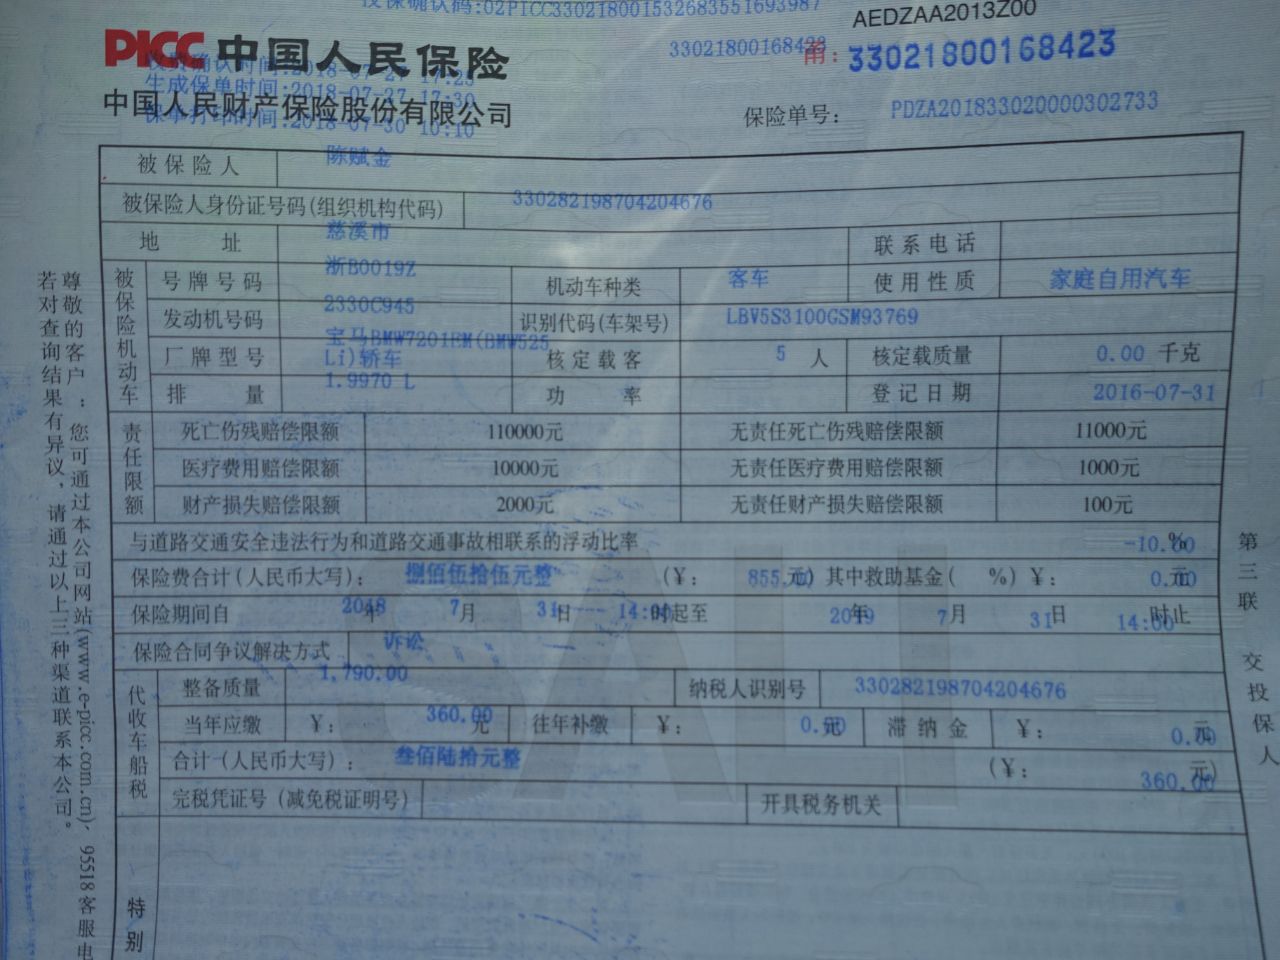 投保确认码:02PICC330218001532683551693987
AEDZAA2013Z00
PICC 中国人民保险
33021800168423
甬: 33021800168423
收费确认时间:2018-07-27 17:25
生成保单时间:2018-07-27 17:30
保单打印时间:2018-07-30 10:10
中国人民财产保险股份有限公司
保险单号: PDZA201833020000302733
被保险人 陈赋金
被保险人身份证号码(组织机构代码) 330282198704204676
地 址 慈溪市 联系电话
被保险机动车
号牌号码 浙B0019Z 机动车种类 客车 使用性质 家庭自用汽车
发动机号码 2330C945 识别代码(车架号) LBV5S3100GSM93769
厂牌型号 宝马BMW7201EM(BMW525Li)轿车 核定载客 5 人 核定载质量 0.00 千克
排 量 1.9970 L 功 率 登记日期 2016-07-31
责任限额
死亡伤残赔偿限额 110000元 无责任死亡伤残赔偿限额 11000元
医疗费用赔偿限额 10000元 无责任医疗费用赔偿限额 1000元
财产损失赔偿限额 2000元 无责任财产损失赔偿限额 100元
与道路交通安全违法行为和道路交通事故相联系的浮动比率 -10.00 %
保险费合计(人民币大写): 捌佰伍拾伍元整 (¥: 855.00 元) 其中救助基金( %) ¥: 0.00 元
保险期间自 2018 年 7 月 31 日 14:00 时起至 2019 年 7 月 31 日 14:00 时止
保险合同争议解决方式 诉讼
代收车船税
整备质量 1,790.00 纳税人识别号 330282198704204676
当年应缴 ¥: 360.00 元 往年补缴 ¥: 0.00 元 滞纳金 ¥: 0.00 元
合计(人民币大写): 叁佰陆拾元整 (¥: 360.00 元)
完税凭证号(减免税证明号) 开具税务机关
特别
尊敬的客户:您可通过本公司网站(www.e-picc.com.cn)、95518客服电
若对查询结果有异议,请通过以上三种渠道联系本公司。
第三联 交投保人